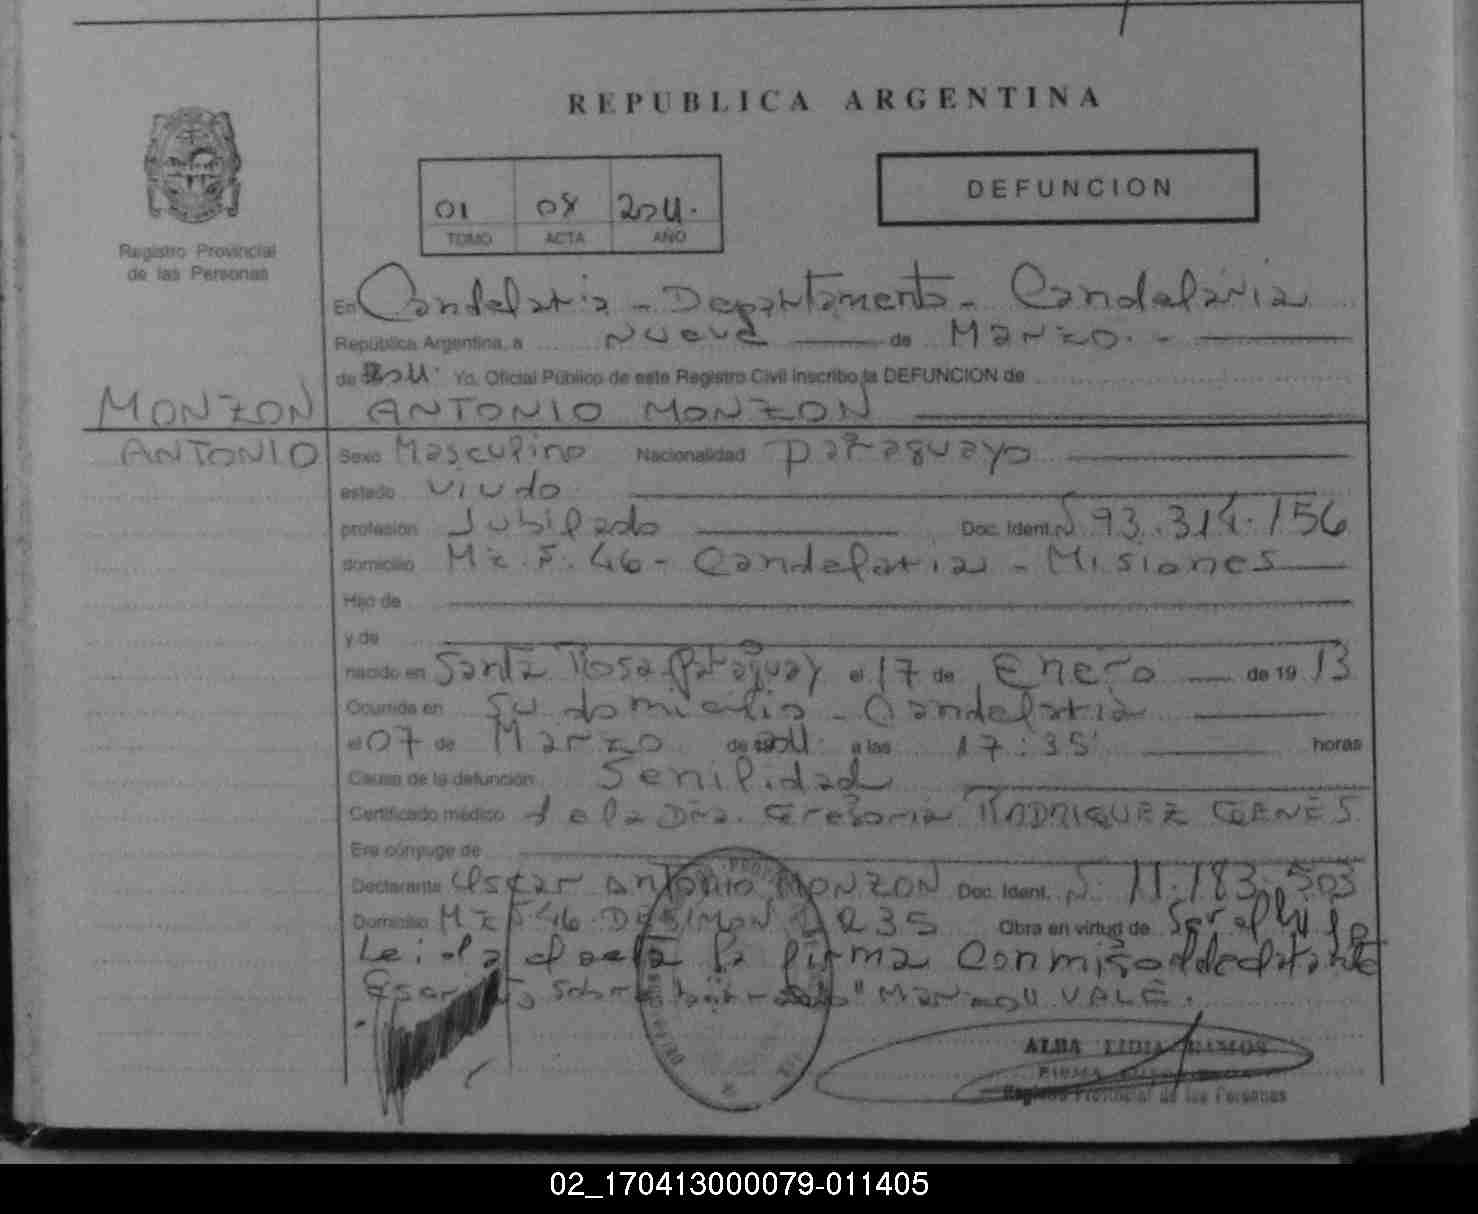 REPUBLICA ARGENTINA
01 08 2011.
TOMO ACTA AÑO
DEFUNCION
Registro Provincial
de las Personas
En Candelaria - Departamento - Candelaria
República Argentina, a Nueve de Marzo. -
de 2011. Yo, Oficial Público de este Registro Civil inscribo la DEFUNCION de
MONZON ANTONIO MONZON
ANTONIO
Sexo Masculino Nacionalidad paraguayo
estado viudo
profesión Jubilado Doc. Ident. Nº 93.314.156
domicilio Mz. F. 46 - Candelaria - Misiones
Hijo de
y de
nacido en Santa Rosa (Paraguay) el 17 de Enero de 19 13
Ocurrida en su domicilio - Candelaria
el 07 de Marzo de 2011. a las 17:35' horas
Causa de la defunción Senilidad
Certificado médico de la Dra. Gregoria RODRIGUEZ GENES.
Era cónyuge de
Declarante Oscar Antonio MONZON Doc. Ident. Nº 11.183.503
Domicilio Mz F. 46 235 Obra en virtud de Ser el hijo
Leida el acta la firma Conmigo el declarante
sobre "Marzo" VALE.
ALBA LIDIA RAMOS
FIRMA
Registro Provincial de las Personas
02_170413000079-011405